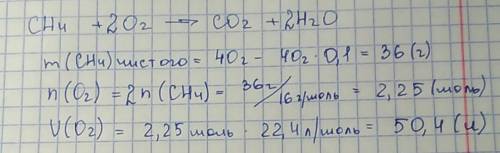 CH4 + 2O2 → CO2 + 2H2O
m(CH4)чистого = 40г - 40г · 0,1 = 36 (г)
n(O2) = 2n(CH4) = 36г/16г/моль = 2,25 (моль)
V(O2) = 2,25 моль · 22,4 л/моль = 50,4 (л)